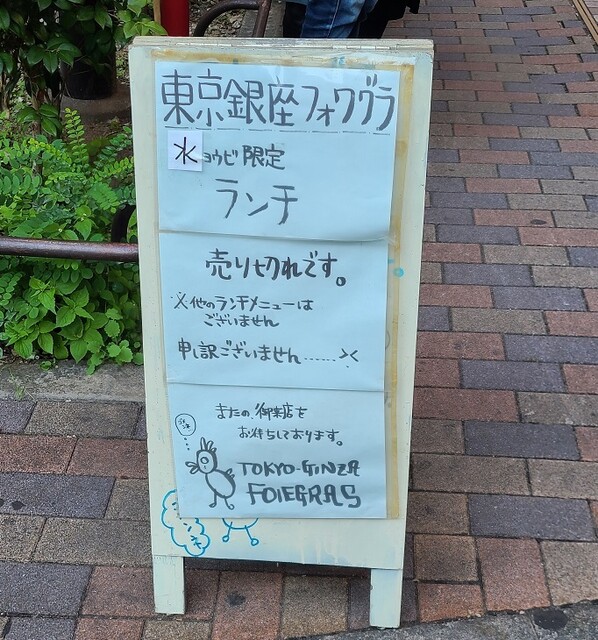 東京銀座フォワグラ
水ョウビ限定
ランチ
売り切れです。
※他のランチメニューは
ございません
申し訳ございません……><
またの、御来店を
お待ちしております。
TOKYO-GINZA
FOIEGRAS